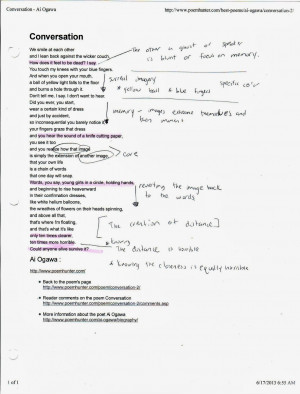 Conversation - Ai Ogawa
http://www.poemhunter.com/best-poems/ai-ogawa/conversation-2/
Conversation
We smile at each other
and I lean back against the wicker couch.
How does it feel to be dead? I say.
You touch my knees with your blue fingers.
And when you open your mouth,
a ball of yellow light falls to the floor
and burns a hole through it.
Don't tell me, I say. I don't want to hear.
Did you ever, you start,
wear a certain kind of dress
and just by accident,
so inconsequential you barely notice it,
your fingers graze that dress
and you hear the sound of a knife cutting paper,
you see it too
and you realize how that image
is simply the extension of another image,
that your own life
is a chain of words
that one day will snap.
Words, you say, young girls in a circle, holding hands,
and beginning to rise heavenward
in their confirmation dresses,
like white helium balloons,
the wreathes of flowers on their heads spinning,
and above all that,
that's where I'm floating,
and that's what it's like
only ten times clearer,
ten times more horrible.
Could anyone alive survive it?
The other a ghost or
is blunt or focus on memory.
surreal imagery
* yellow ball & blue fingers
specific color
memory - images extend themselves and
core
reverting the image back
to the words
[The creation of distance]
* knowing
The distance is horrible
* knowing the closeness is equally horrible
Ai Ogawa :
http://www.poemhunter.com/
Back to the poem's page
http://www.poemhunter.com/poem/conversation-2/
Reader comments on the poem Conversation
http://www.poemhunter.com/poem/conversation-2/comments.asp
More information about the poet Ai Ogawa
http://www.poemhunter.com/ai-ogawa/biography/
1 of 1
6/17/2013 6:55 AM